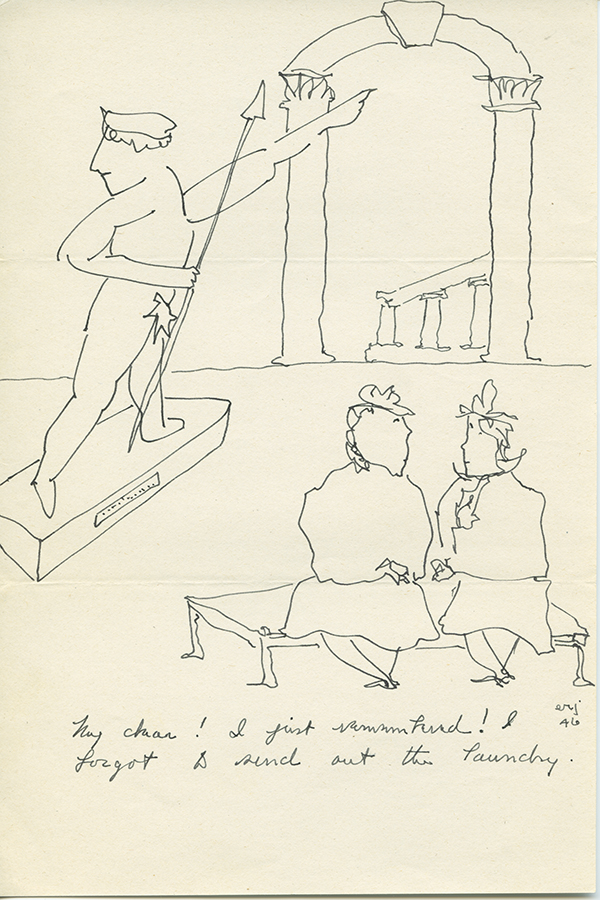 erj
46
My dear! I just remembered! I
forgot to send out the laundry.